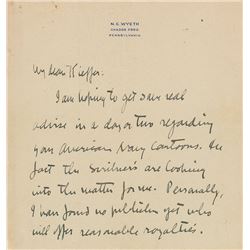 N. C. WYETH
CHADDS FORD
PENNSYLVANIA
My dear Kieffer:
I am hoping to get some real
advise in a day or two regarding
your American Navy Cartoons. In
fact the Scribner's are looking
into the matter for me. Personally,
I have found no publisher yet who
will offer reasonable royalties.